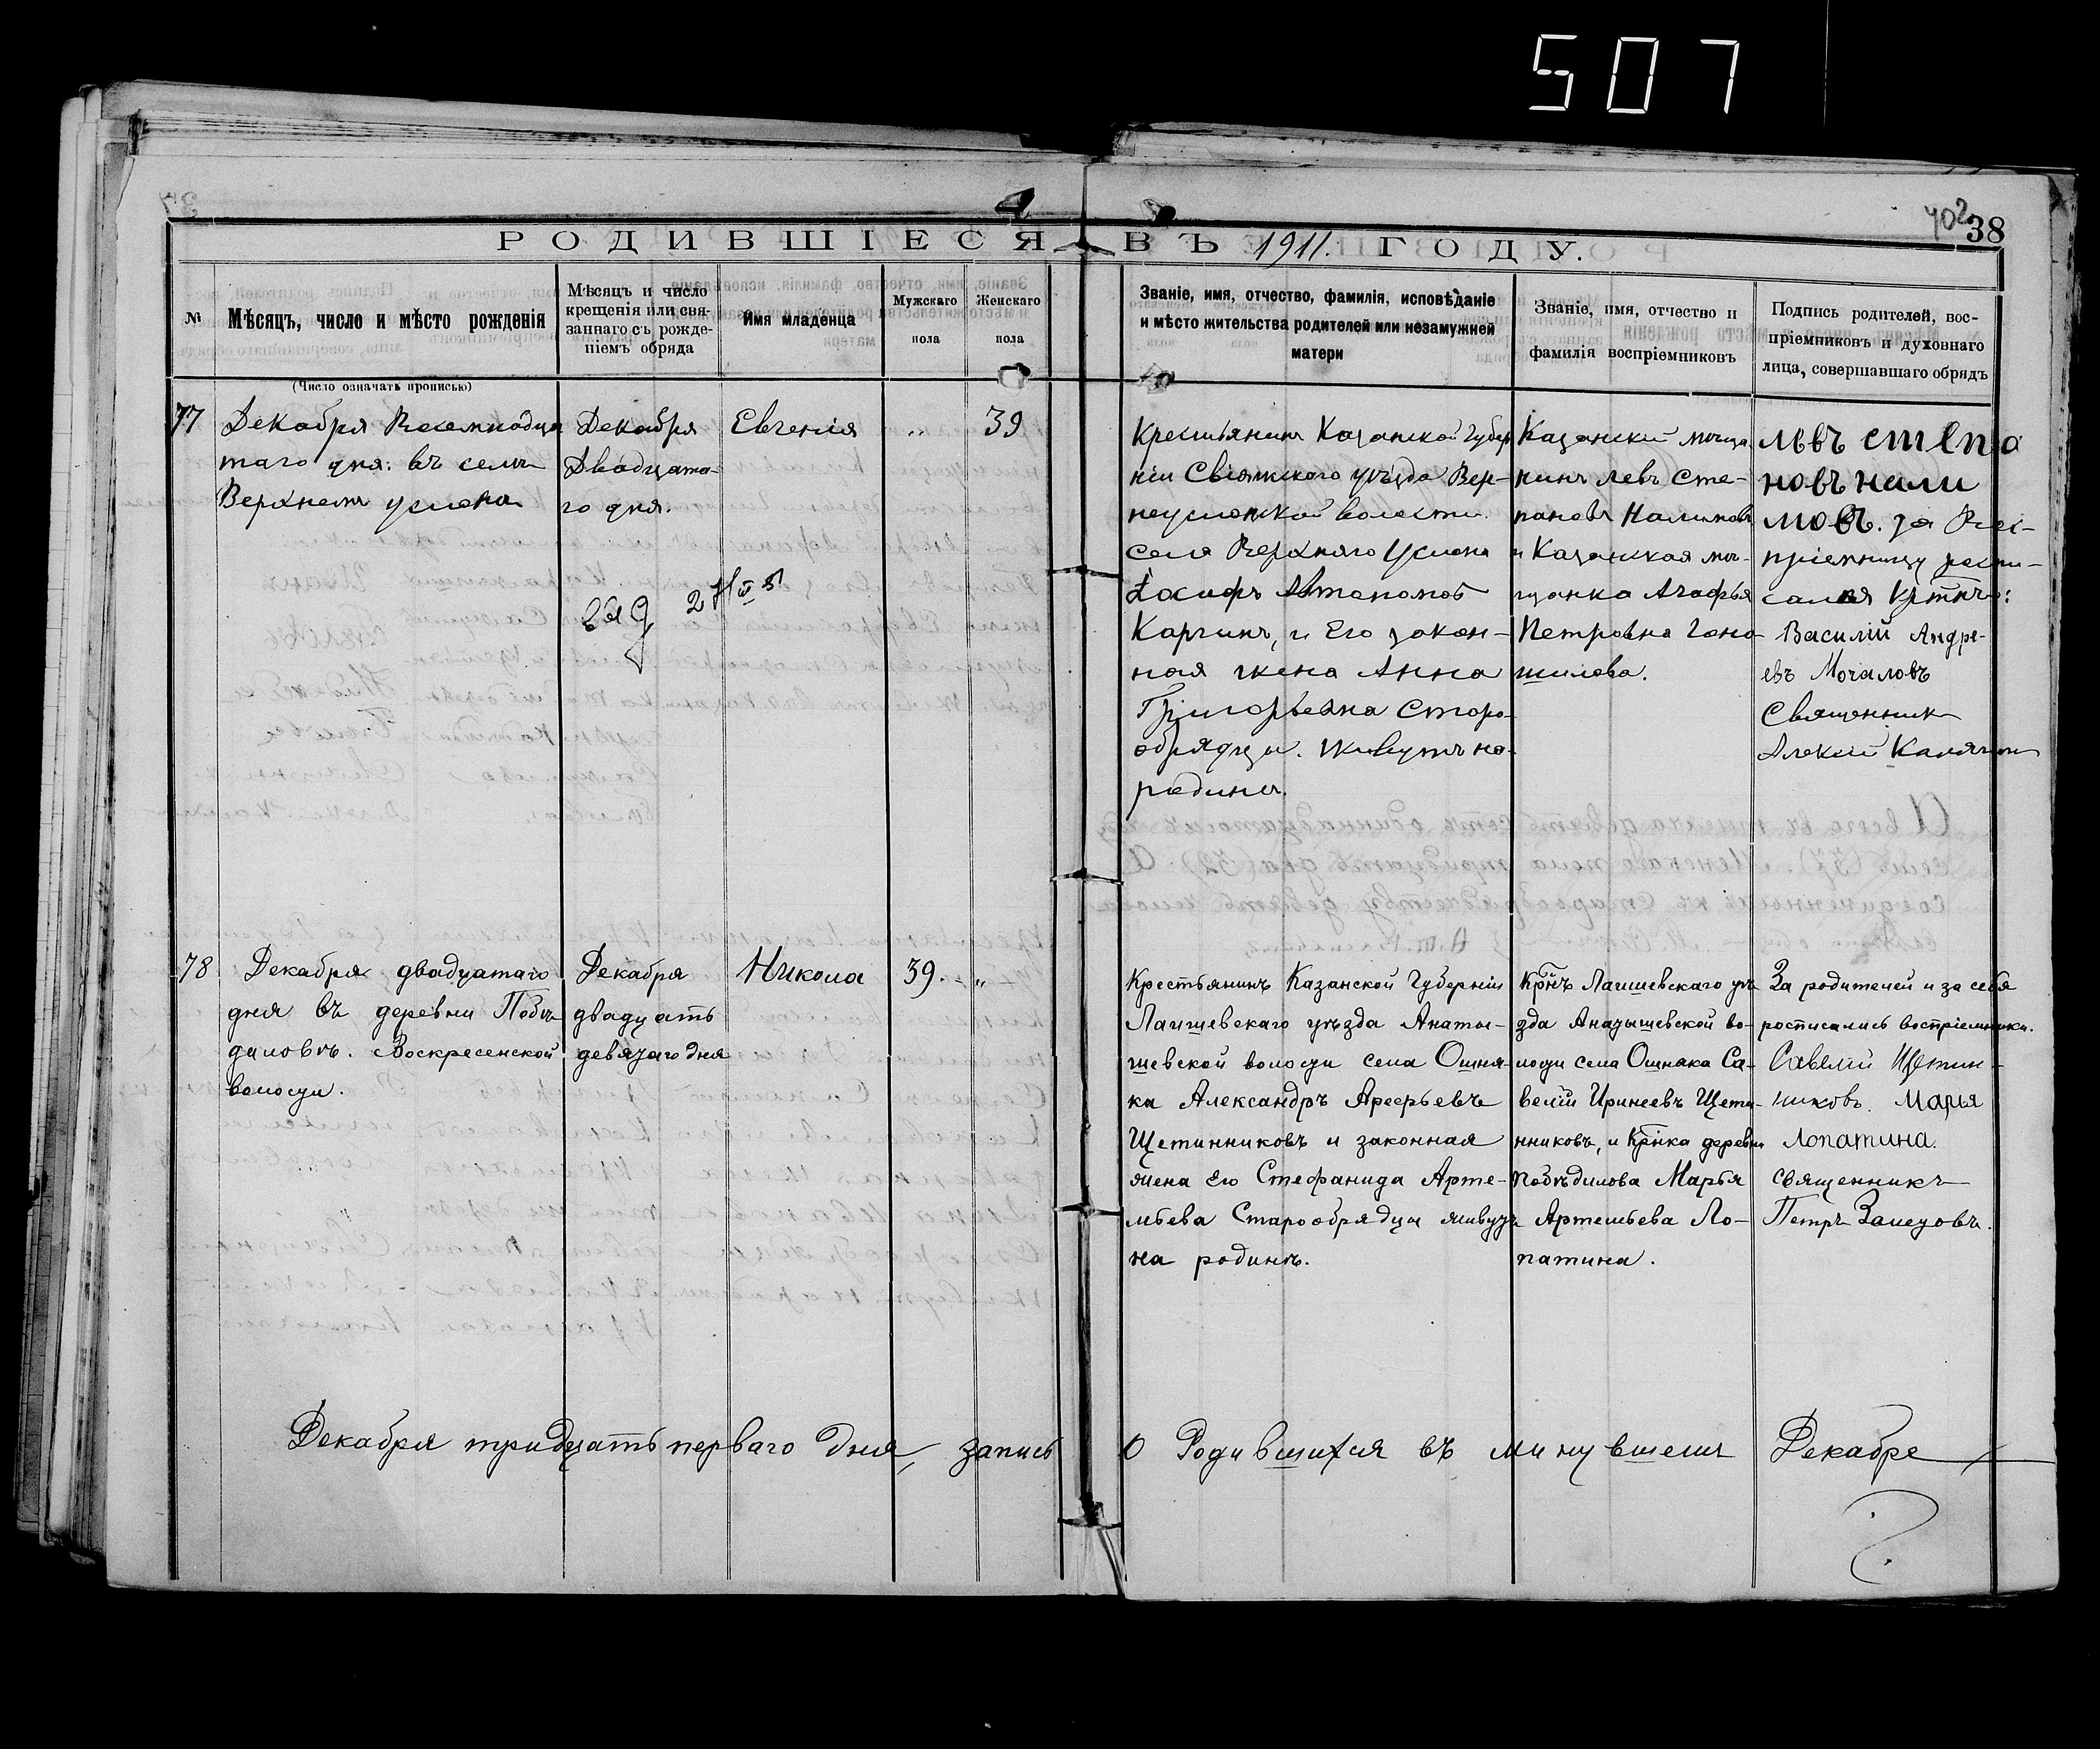 507
402
38
РОДИВШІЕСЯ ВЪ 1911. ГОДУ.
№
Мѣсяцъ, число и мѣсто рожденія
(Число означать прописью)
Мѣсяцъ и число
крещенія или свя-
заннаго съ рожде-
ніемъ обряда
Имя младенца
Мужскаго
пола
Женскаго
пола
Званіе, имя, отчество, фамилія, исповѣданіе
и мѣсто жительства родителей или незамужней
матери
Званіе, имя, отчество и
фамилія воспріемниковъ
Подпись родителей, вос-
пріемниковъ и духовнаго
лица, совершавшаго обрядъ
77
Декабря Восемнадца
таго дня: въ селѣ
Верхнемъ услонѣ
Декабря
Двадцата-
го дня.
Евгенія
„
39
Крестьянинъ Казанской Губер
ніи Свіяжскаго уѣзда Верх-
неуслонской волости.
села Верхняго Услона
Іосифъ Автономовъ
Каргинъ, и Его закон-
ная жена Анна
Григорьевна Старо-
обрядцы. живутъ на-
родинѣ.
Казанскій мѣща
нинъ Левъ Сте-
пановъ Налимовъ
и Казанская мѣ-
щанка Агафья
Петровна
шилова.
львъ степа
новъ нали
мовъ. за Вос-
пріемницу распи-
сался
Василій Андре-
евъ Мочаловъ
Священник
Алексій
78
Декабря двадцатаго
дня въ деревни Побѣ
диловѣ. Воскресенской
волости.
Декабря
двадцать
девятаго дня
Никола
39.
„
Крестьянинъ Казанской Губерніи
Лаишевскаго уѣзда Анаты-
шевской волости села Ошня-
ка Александръ Арефьевъ
Щетинниковъ и законная
жена Его Стефанида Арте-
мьева Старообрядцы живутъ
на родинѣ.
Крнъ Лаишевскаго уѣ
зда Анатышевской во-
лости села Ошняка Са-
велій Иринеевъ Щети-
нниковъ, и Крнка деревни
Побѣдилова Марья
Артемьева Ло-
патина.
За родителей и за себя
росписались воспріемники.
Савелій Щетин-
никовъ. Марья
Лопатина.
священникъ
Петръ Залетовъ.
Декабря тридцать перваго дня, запись О Родившихся въ минувшемъ Декабре